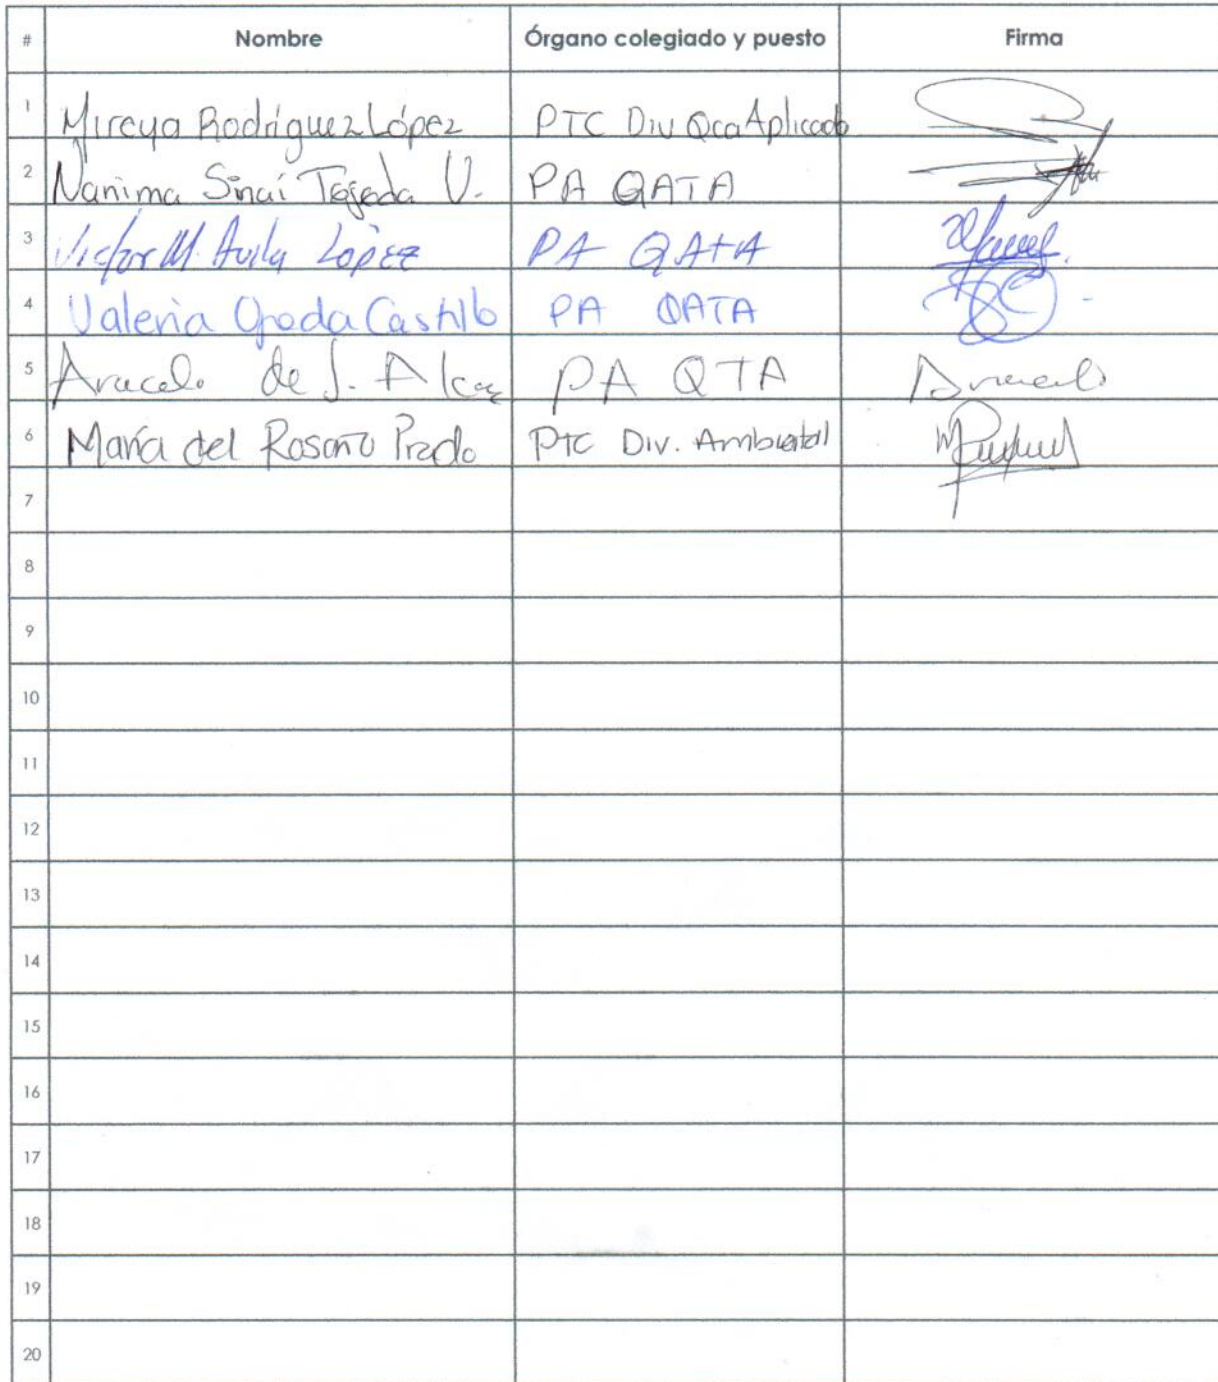 # Nombre Órgano colegiado y puesto Firma
1 Mireya Rodríguez López PTC Div Qca Aplicada
2 Nanima Sinaí Tejeda V. PA QATA
3 Victor M. Avila López PA QATA
4 Valeria Ojeda Castillo PA QATA
5 Araceli de J. PA QTA Araceli
6 María del Rosario Prado PTC Div. Ambiental
7
8
9
10
11
12
13
14
15
16
17
18
19
20